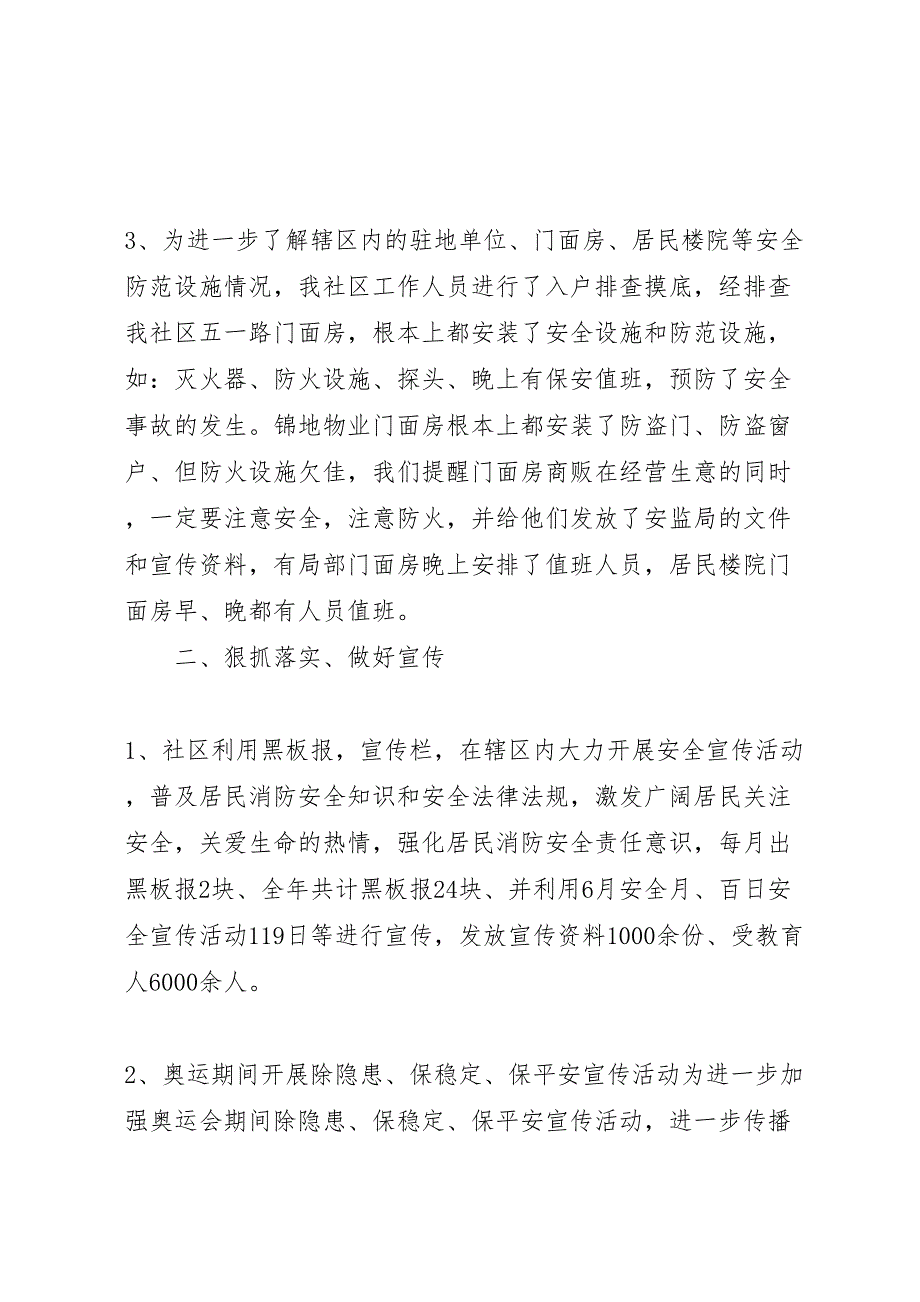 3、为进一步了解辖区内的驻地单位、门面房、居民楼院等安全
防范设施情况，我社区工作人员进行了入户排查摸底，经排查
我社区五一路门面房，根本上都安装了安全设施和防范设施，
如：灭火器、防火设施、探头、晚上有保安值班，预防了安全
事故的发生。锦地物业门面房根本上都安装了防盗门、防盗窗
户、但防火设施欠佳，我们提醒门面房商贩在经营生意的同时
，一定要注意安全，注意防火，并给他们发放了安监局的文件
和宣传资料，有局部门面房晚上安排了值班人员，居民楼院门
面房早、晚都有人员值班。
二、狠抓落实、做好宣传
1、社区利用黑板报，宣传栏，在辖区内大力开展安全宣传活动
，普及居民消防安全知识和安全法律法规，激发广阔居民关注
安全，关爱生命的热情，强化居民消防安全责任意识，每月出
黑板报2块、全年共计黑板报24块、并利用6月安全月、百日安
全宣传活动119日等进行宣传，发放宣传资料1000余份、受教育
人6000余人。
2、奥运期间开展除隐患、保稳定、保平安宣传活动为进一步加
强奥运会期间除隐患、保稳定、保平安宣传活动，进一步传播